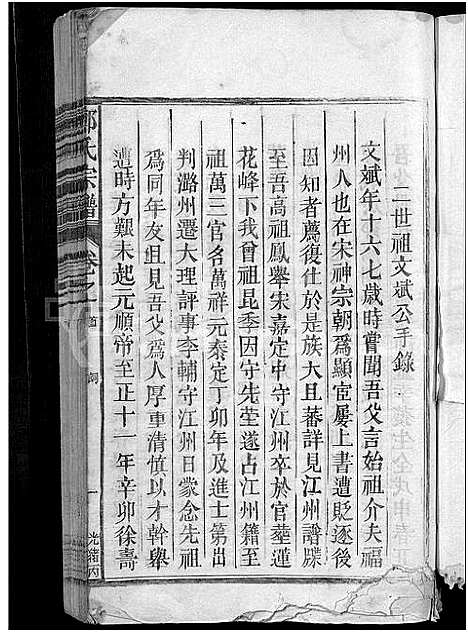 二世祖文斌公手錄
文斌年十六七歲時嘗聞吾父言始祖介夫福
州人也在宋神宗朝爲顯宦屢上書遭貶逐後
因知者薦復仕於是族大且蕃詳見江州譜牒
至吾高祖鳳舉宋嘉定中守江州卒於官葬蓮
花峰下我曾祖昆季因守先塋遂占江州籍至
祖萬三官名萬祥元泰定丁卯年及進士第出
判潞州遷大理評事李輔守江州日蒙念先祖
爲同年友且見吾父爲人厚重清慎以才幹舉
遭時方艱未起元順帝至正十一年辛卯徐壽
氏宗譜
卷之首
一
光緒丙